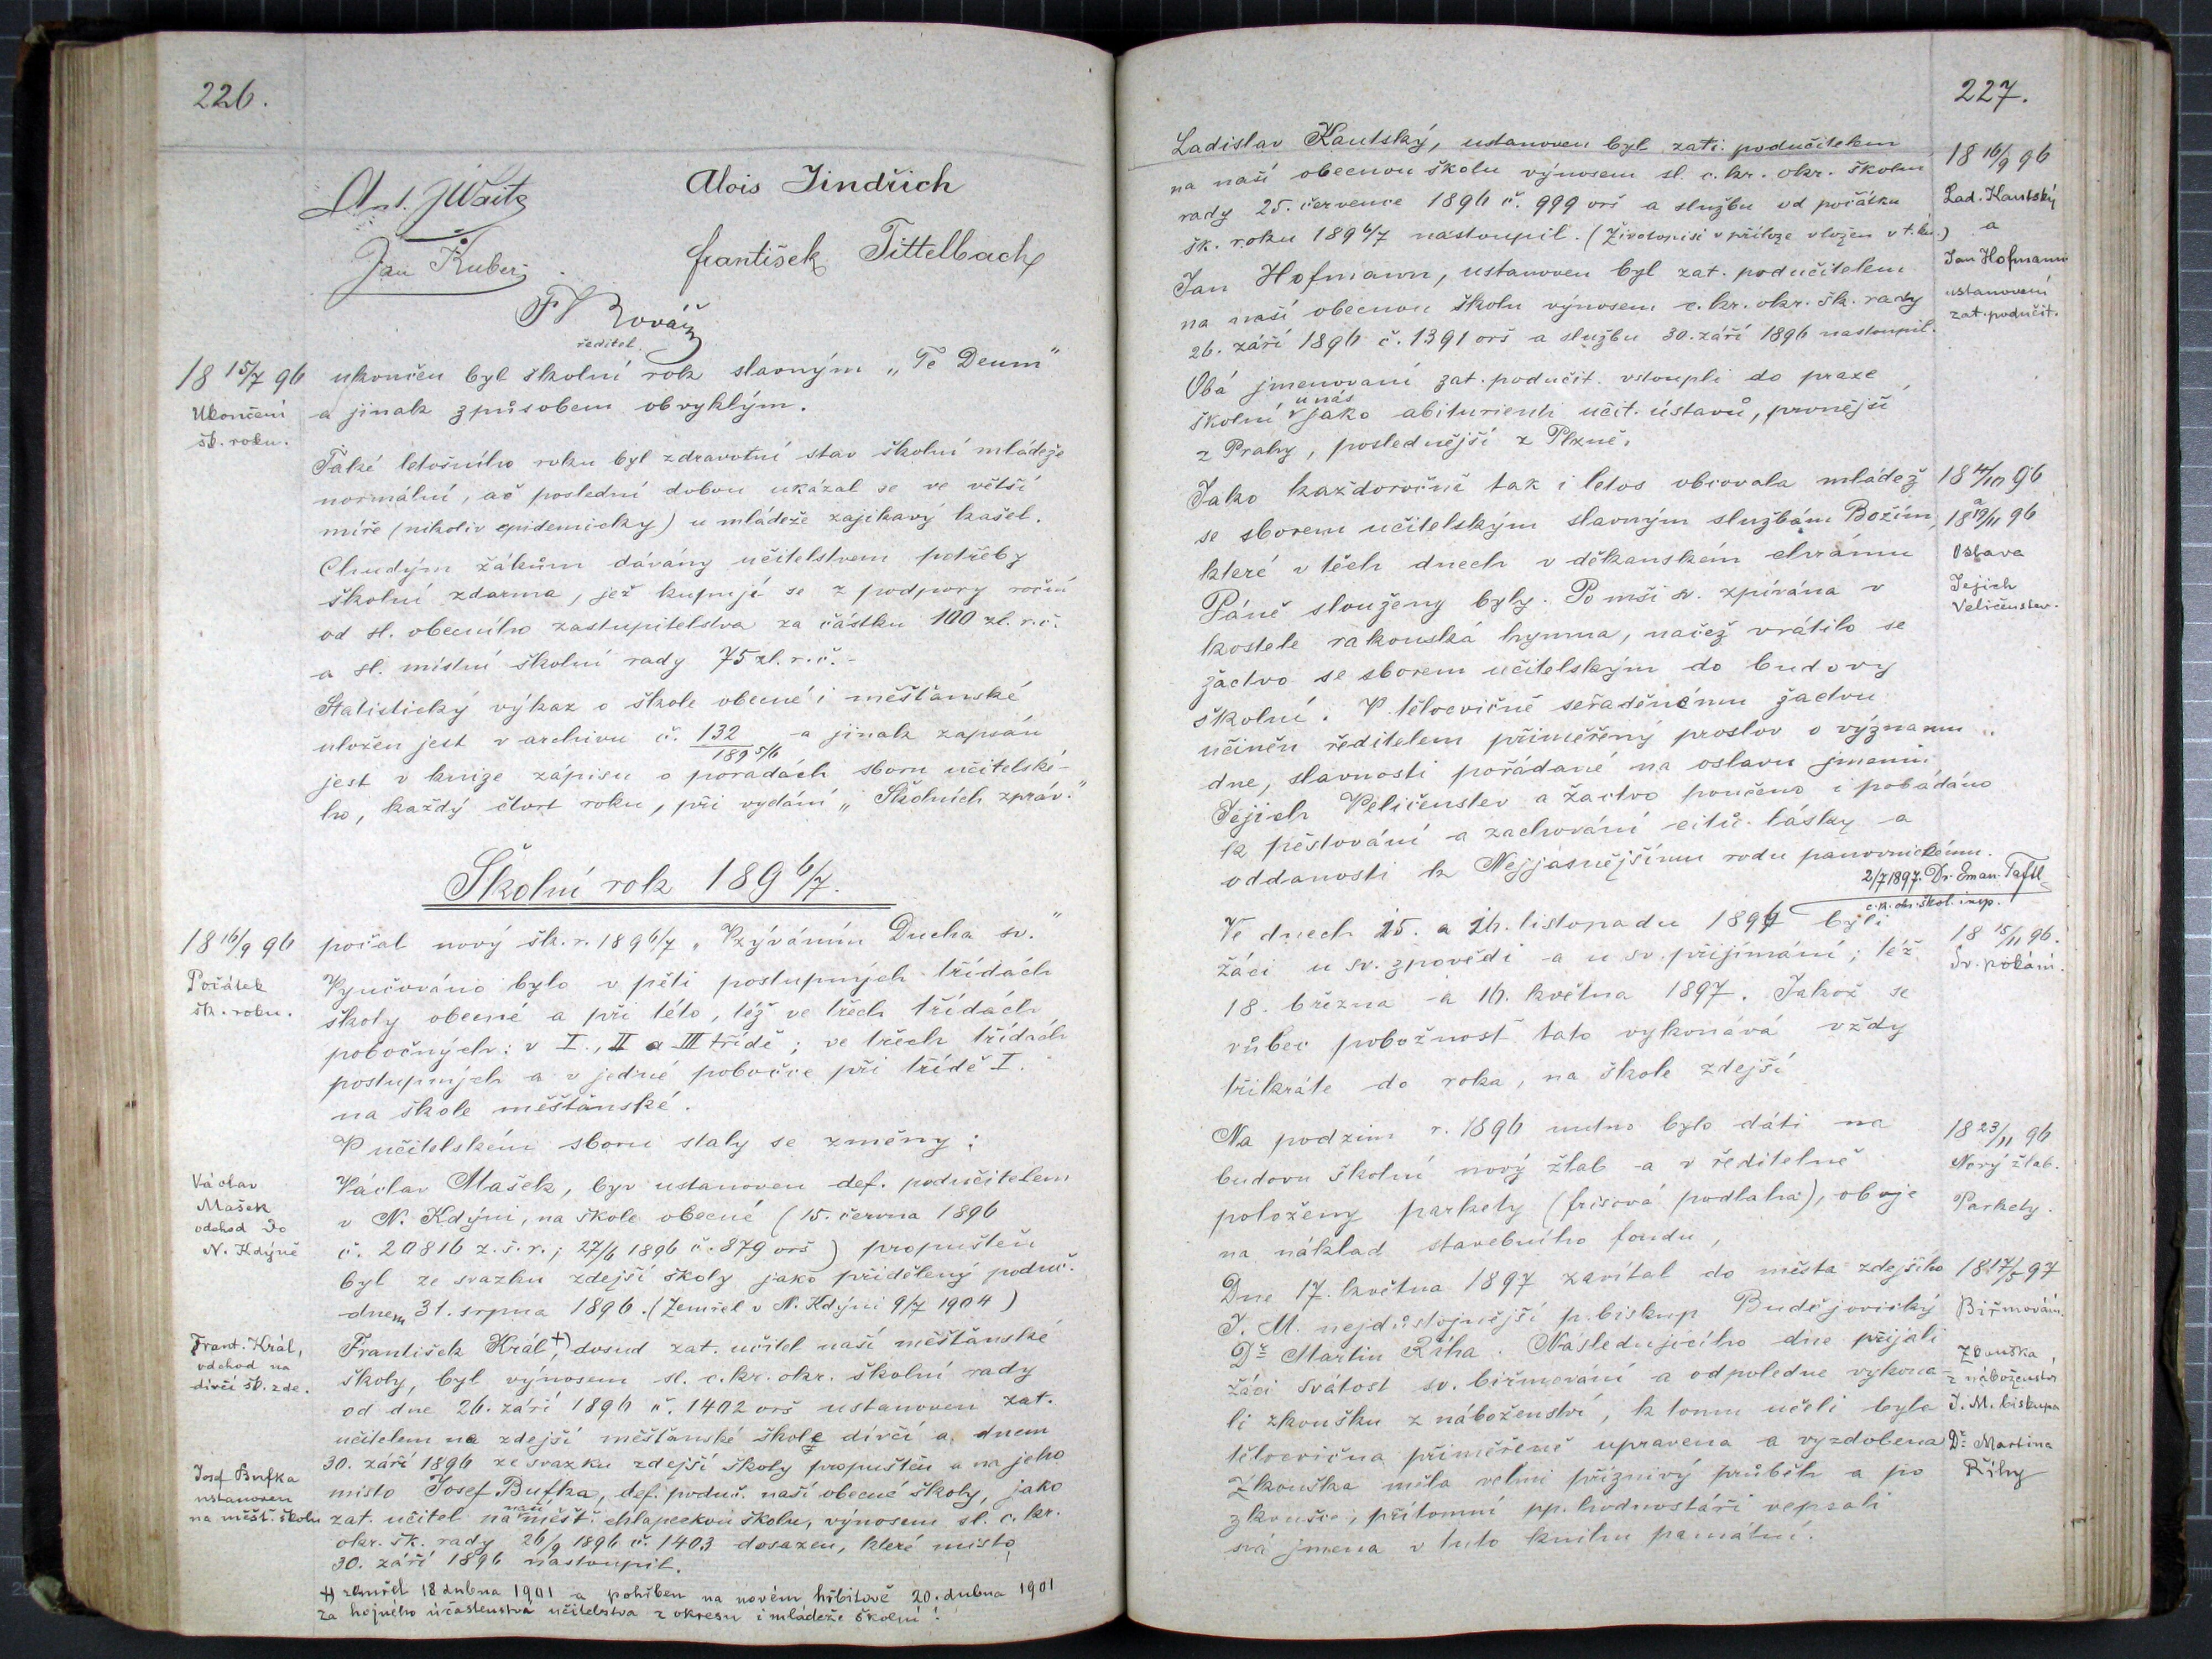 226.
Ant. J Waitz
Alois Jindřich
Jan Kuber
František Tittelbach
F Kovář
ředitel.
18 15/7 96
Ukončení
šk. roku.
ukončen byl školní rok slavným „Te Deum"
a jinak způsobem obvyklým.
Také letošního roku byl zdravotní stav školní mládeže
normální, ač poslední dobou ukázal se ve větší
míře (nikoliv epidemicky) u mládeže zajíkavý kašel.
Chudým žákům dávány učitelstvem potřeby
školní zdarma, jež kupují se z podpory roční
od sl. obecního zastupitelstva za částku 100 zl. r.č.
a sl. místní školní rady 75 zl. r.č.-
Statistický výkaz o škole obecné i měšťanské
uložen jest v archivu č. 132/189 5/6 a jinak zapsán
jest v knize zápisu o poradách sboru učitelské-
ho, každý čtvrt roku, při vydání „Školních zpráv."
Školní rok 189 6/7.
18 16/9 96
Počátek
šk. roku.
počal nový šk. r. 189 6/7 „Vzýváním Ducha sv."
Vyučováno bylo v pěti postupných třídách
školy obecné a při této, též ve třech třídách
pobočných: v I., II a III třídě; ve třech třídách
postupných a v jedné pobočce při třídě I.
na škole měšťanské.
V učitelském sboru staly se změny:
Václav
Mašek
odchod do
N. Kdýně
Václav Mašek, byv ustanoven def. podučitelem
v N. Kdýni, na škole obecné (15. června 1896
č. 20816 z.š.r.; 27/6 1896 č. 879 orš) propuštěn
byl ze svazku zdejší školy jako přidělený poduč.
dnem 31. srpna 1896. (Zemřel v N. Kdýni 9/7 1904)
Frant. Král,
odchod na
dívčí šk. zde.
František Král +), dosud zat. učitel naší měšťanské
školy, byl výnosem sl. c. kr. okr. školní rady
od dne 26. září 1896 č. 1402 orš ustanoven zat.
učitelem na zdejší měšťanské škole dívčí a dnem
30. září 1896 ze svazku zdejší školy propuštěn a na jeho
Josef Bufka
ustanoven
na měšť. školu
místo Josef Bufka, def. poduč. naší obecné školy, jako
zat. učitel na naší měšť. chlapeckou školu, výnosem sl. c. kr.
okr. šk. rady 26/9 1896 č. 1403 dosazen, které místo
30. září 1896 nastoupil.
+) zemřel 18 dubna 1901 a pohřben na novém hřbitově 20. dubna 1901
za hojného účastenství učitelstva z okresu i mládeže školní!
227.
Ladislav Kautský, ustanoven byl zati. podučitelem
na naší obecnou školu výnosem sl. c. kr. okr. školní
rady 25. července 1896 č. 999 orš a službu od počátku
šk. roku 189 6/7 nastoupil. (Životopisi v příloze vložen v t. kn.)
18 16/9 96
Lad. Kautský
a
Jan Hofmann
ustanoveni
zat. podučit.
Jan Hofmann, ustanoven byl zat. podučitelem
na naší obecnou školu výnosem c. kr. okr. šk. rady
26. září 1896 č. 1391 orš a službu 30. září 1896 nastoupil.
Obá jmenovaní zat. podučit. vstoupli do praxe
školní u nás jako abiturienti učit. ústavů, prvnější
z Prahy, poslednější z Plzně.
18 4/10 96
a
18 19/11 96
Oslava
Jejich
Veličenstev.
Jako každoročně tak i letos obcovala mládež
se sborem učitelským slavným službám Božím,
které v těch dnech v děkanském chrámu
Páně slouženy byly. Po mši sv. zpívána v
kostele rakouská hymna, načež vrátilo se
žactvo se sborem učitelským do budovy
školní. V tělocvičně seřaděnému žactvu
učiněn ředitelem přiměřený proslov o významu
dne, slavnosti pořádané na oslavu jmenin
Jejich Veličenstev a žactvo poučeno i pobádáno
k pěstování a zachování citů lásky a
oddanosti k Nejjasnějšímu rodu panovnickému.
2/7 1897. Dr. Eman. Taftl
c. k. okr. škol. insp.
Ve dnech 15. a 16. listopadu 1896 byli
žáci u sv. zpovědi a u sv. přijímání; též
18. března a 16. května 1897. Jakož se
vůbec pobožnost tato vykonává vždy
třikráte do roka, na škole zdejší
18 15/11 96.
Sv. pokání.
Na podzim r. 1896 nutno bylo dáti na
budovu školní nový žlab a v ředitelně
položeny parkety (frisová podlaha), oboje
na náklad stavebního fondu,
18 23/11 96
Nový žlab.
Parkety.
Dne 17. května 1897 zavítal do města zdejšího
J. M. nejdůstojnější p. biskup Budějovický
Dr. Martin Říha. Následujícího dne přijali
žáci svátost sv. biřmování a odpoledne vykona-
li zkoušku z náboženství, k tomu účeli byla
tělocvična přiměřeně upravena a vyzdobena
Zkouška měla velmi příznivý průběh a po
zkoušce, přítomní pp. hodnostáři vepsali
svá jmena v tuto knihu památní.
18 17/5 97
Biřmování.
Zkouška
z náboženství
J. M. biskupa
Dr. Martina
Říhy